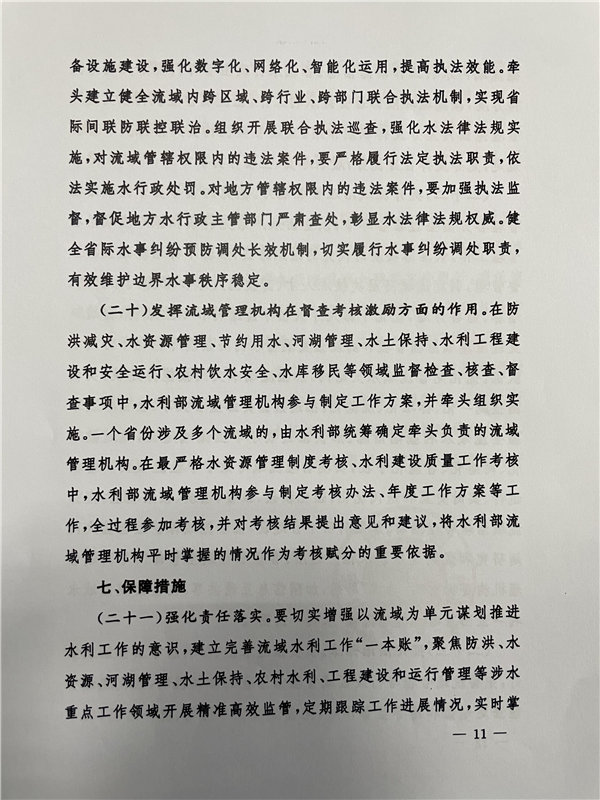 备设施建设,强化数字化、网络化、智能化运用,提高执法效能。牵
头建立健全流域内跨区域、跨行业、跨部门联合执法机制,实现省
际间联防联控联治。组织开展联合执法巡查,强化水法律法规实
施,对流域管辖权限内的违法案件,要严格履行法定执法职责,依
法实施水行政处罚。对地方管辖权限内的违法案件,要加强执法监
督,督促地方水行政主管部门严肃查处,彰显水法律法规权威。健
全省际水事纠纷预防调处长效机制,切实履行水事纠纷调处职责,
有效维护边界水事秩序稳定。
(二十)发挥流域管理机构在督查考核激励方面的作用。在防
洪减灾、水资源管理、节约用水、河湖管理、水土保持、水利工程建
设和安全运行、农村饮水安全、水库移民等领域监督检查、核查、督
查事项中,水利部流域管理机构参与制定工作方案,并牵头组织实
施。一个省份涉及多个流域的,由水利部统筹确定牵头负责的流域
管理机构。在最严格水资源管理制度考核、水利建设质量工作考核
中,水利部流域管理机构参与制定考核办法、年度工作方案等工
作,全过程参加考核,并对考核结果提出意见和建议,将水利部流
域管理机构平时掌握的情况作为考核赋分的重要依据。
七、保障措施
(二十一)强化责任落实。要切实增强以流域为单元谋划推进
水利工作的意识,建立完善流域水利工作“一本账”,聚焦防洪、水
资源、河湖管理、水土保持、农村水利、工程建设和运行管理等涉水
重点工作领域开展精准高效监管,定期跟踪工作进展情况,实时掌
— 11 —